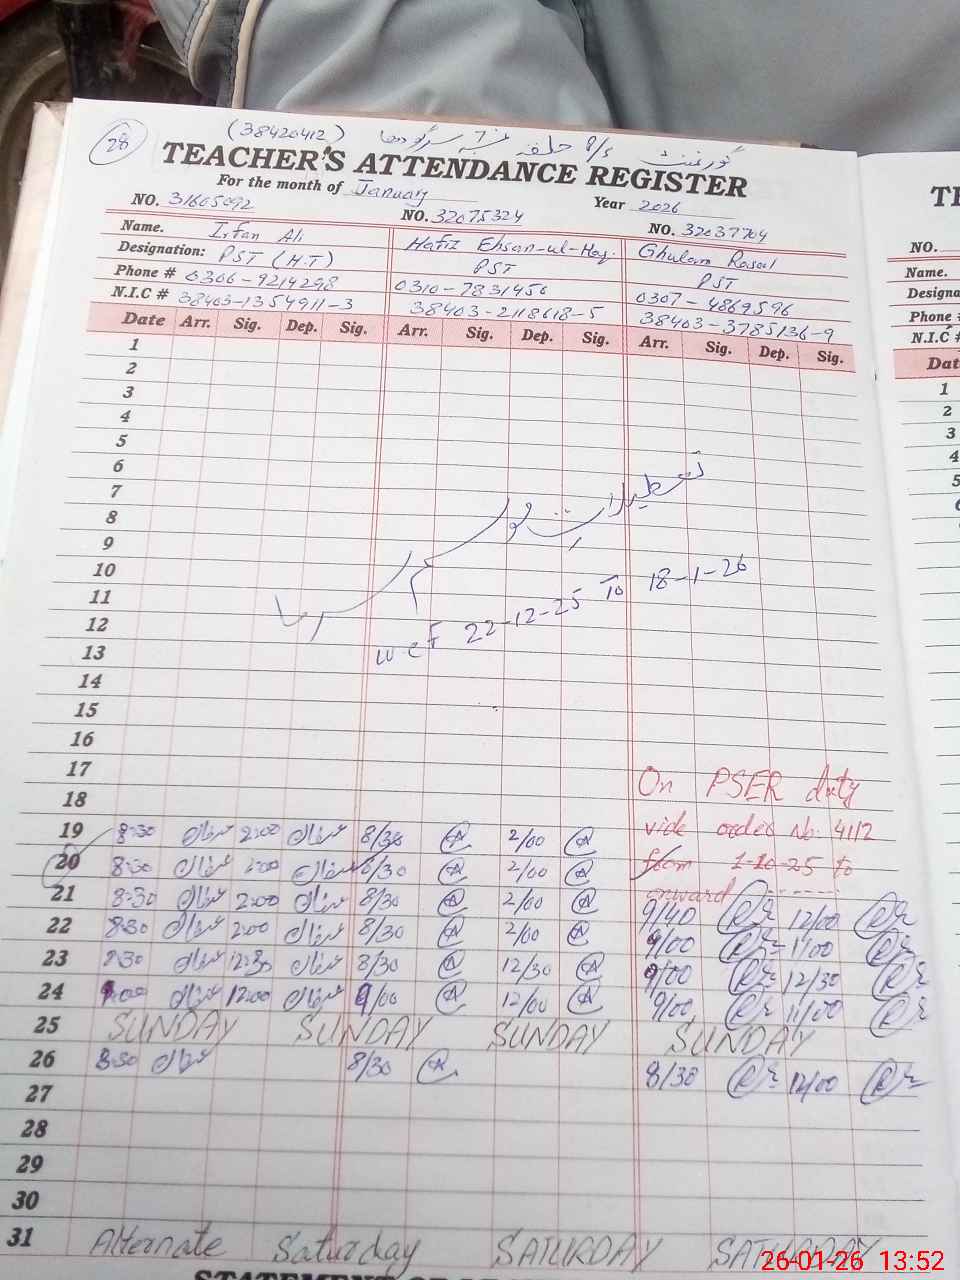 28 (38420412) گورنمنٹ P/S حلقہ نمبر 7 سرگودھا
TEACHER'S ATTENDANCE REGISTER
For the month of January Year 2026
NO. 31605092 NO. 32075324 NO. 32037704
Name. Irfan Ali Hafiz Ehsan-ul-Haq. Ghulam Rasul
Designation: PST (H.T) PST PST
Phone # 0306-9214298 0310-7831456 0307-4869596
N.I.C # 38403-1354911-3 38403-2118618-5 38403-3785136-9
Date Arr. Sig. Dep. Sig. Arr. Sig. Dep. Sig. Arr. Sig. Dep. Sig.
1
2
3
4
5
6
7
تعطیلات موسم سرما
8
9
10
11
wef 22-12-25 To 18-1-26
12
13
14
15
16
17
On PSER duty
18
19 8-30 2:00 8/30 2/00 vide order No. 4112
20 8:30 2:00 8/30 2/00 from 1-10-25 to
21 8-30 2:00 8/30 2/00 onward
9/40 12/00
22 8:30 2:00 8/30 2/00 9/00 11/00
23 8:30 12:30 8/30 12/30 9/00 12/30
24 9:00 12:00 9/00 12/00 9/00 11/00
25 SUNDAY SUNDAY SUNDAY SUNDAY
26 8:30 8/30 8/30 12/00
27
28
29
30
31 Alternate Saturday SATURDAY SATURDAY
NO.
Name.
Phone
N.I.C
1
2
3
4
5
26-01-26 13:52